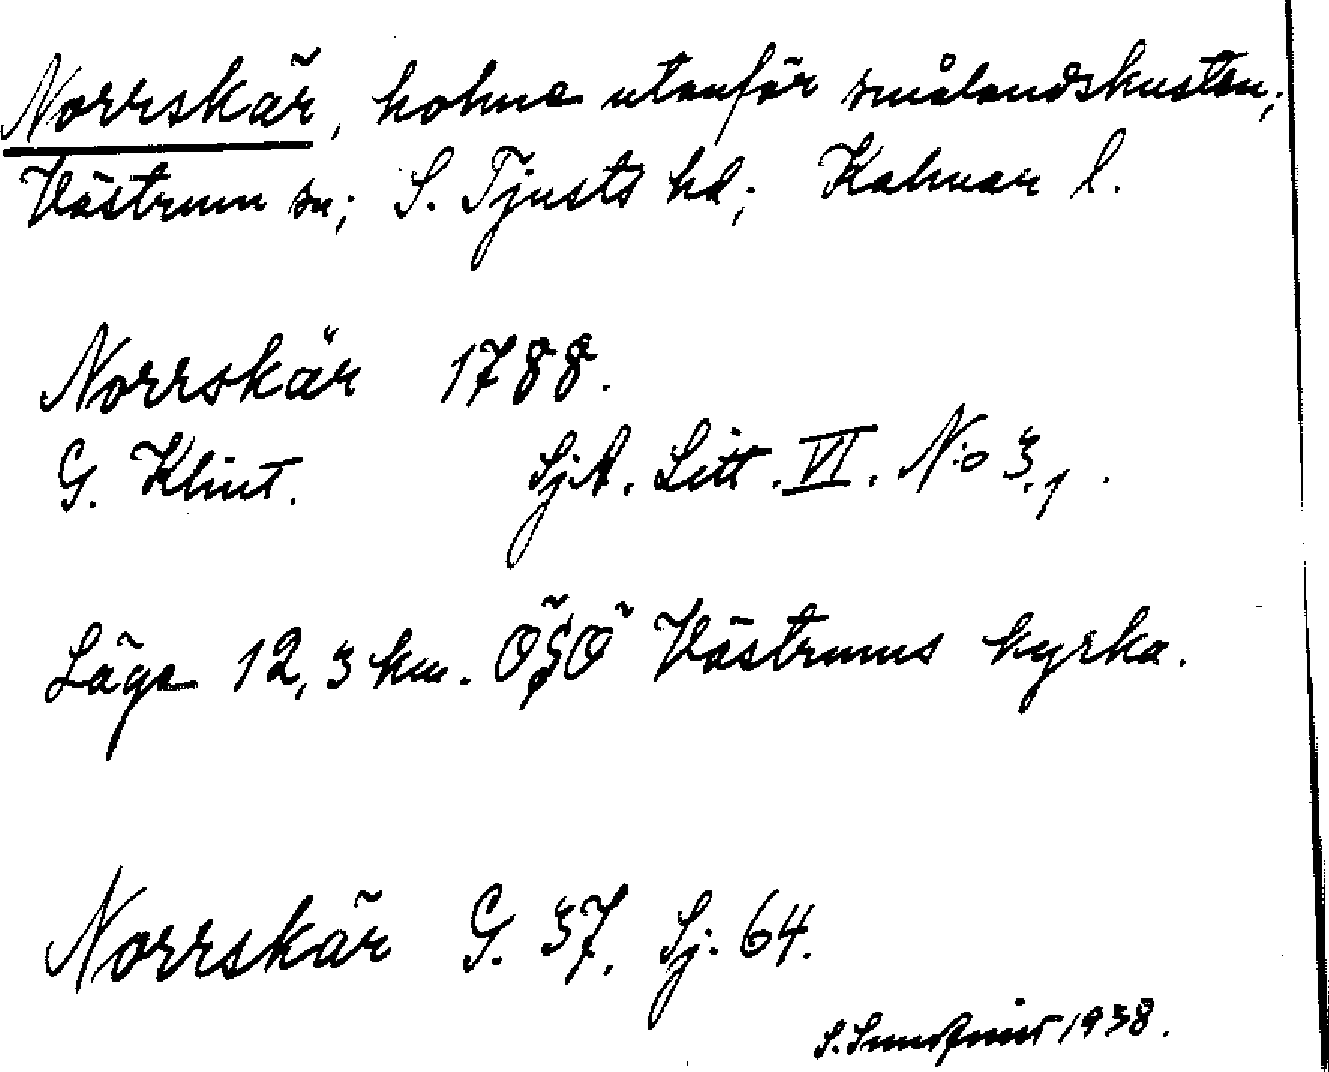 Norrskär, holme utanför smålandskusten;
Västrum sn; S. Tjusts hd; Kalmar l.
Norrskär 1788.
G. Klint. SjA. Litt. VI. N:o 3,1.
Läge 12,3 km. ÖSÖ Västrums kyrka.
Norrskär G. 37. Sj. 64.
S. 1938.